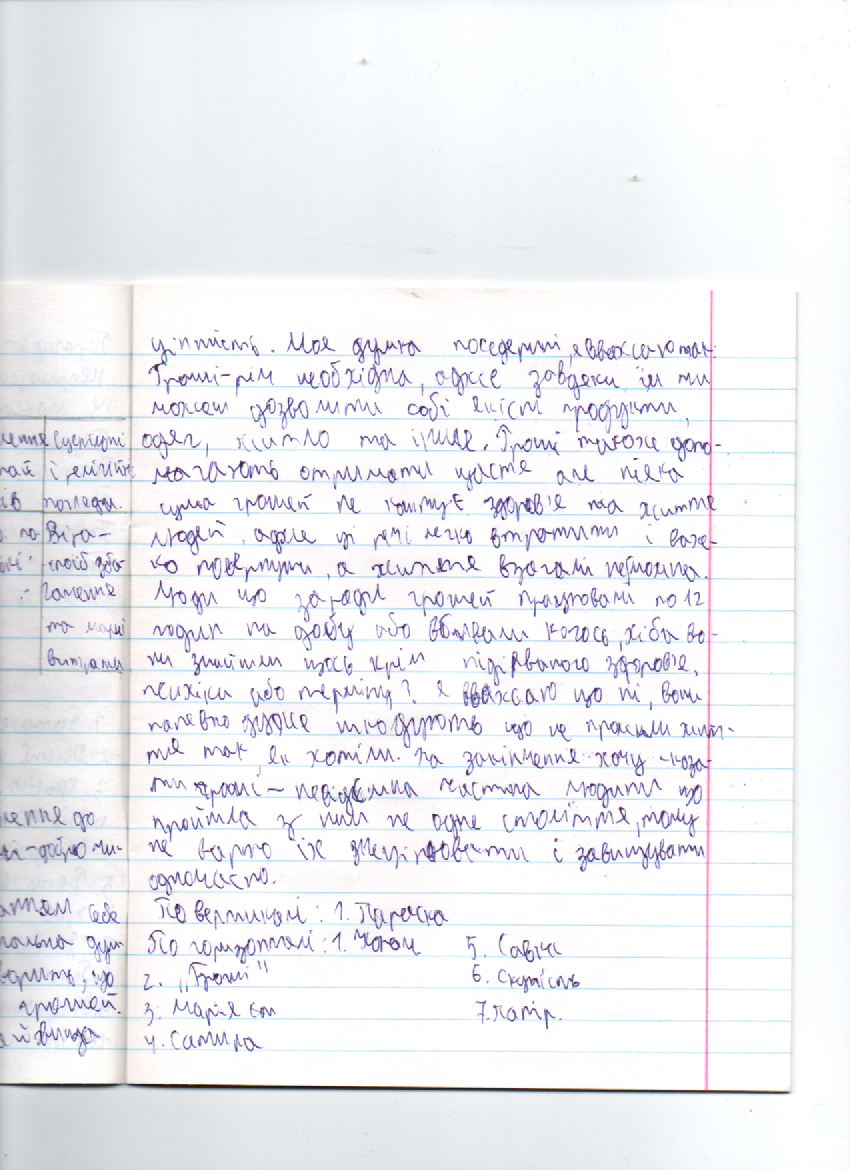 цінність. Моя думка посередині, я вважаю так:
Гроші-річ необхідна, адже завдяки їм ти
можеш дозволити собі якісті продукти,
одяг, житло та інше. Гроші також допо-
магають отримати щастя але ніяка
сума грошей не коштує здоров'я та життя
людей, адже ці речі легко втратити і важ-
ко повернути, а життя взагалі неможна.
Люди що заради грошей працювали по 12
годин на добу або вбивали когось, хіба во-
ни знайшли щось крім підірваного здоров'я,
психіки або терміну? Я вважаю що ні, вони
напевно дуже шкодують що не прожили жит-
тя так, як хотіли. На закінчення хочу сказа-
ти гроші - невідємна частина людини що
пройшла з ним не одне століття, тому
не варто їх знецінювати і завищувати
одночасно.
По вертикалі: 1. Паричка
По горизонталі: 1. Жотом 5. Савіч
2. „Гроші" 6. Скупість
3. Мар'ян 7. Папір.
4. Сатира
лення Сцепері
най і релігійн
ів погляди.
о. по Віра-
спосіб зба-
гачення
та марні
витрати
лення до
ці-добро чи-
аттям себе
нальна дум-
варить, що
грошей.
айвища